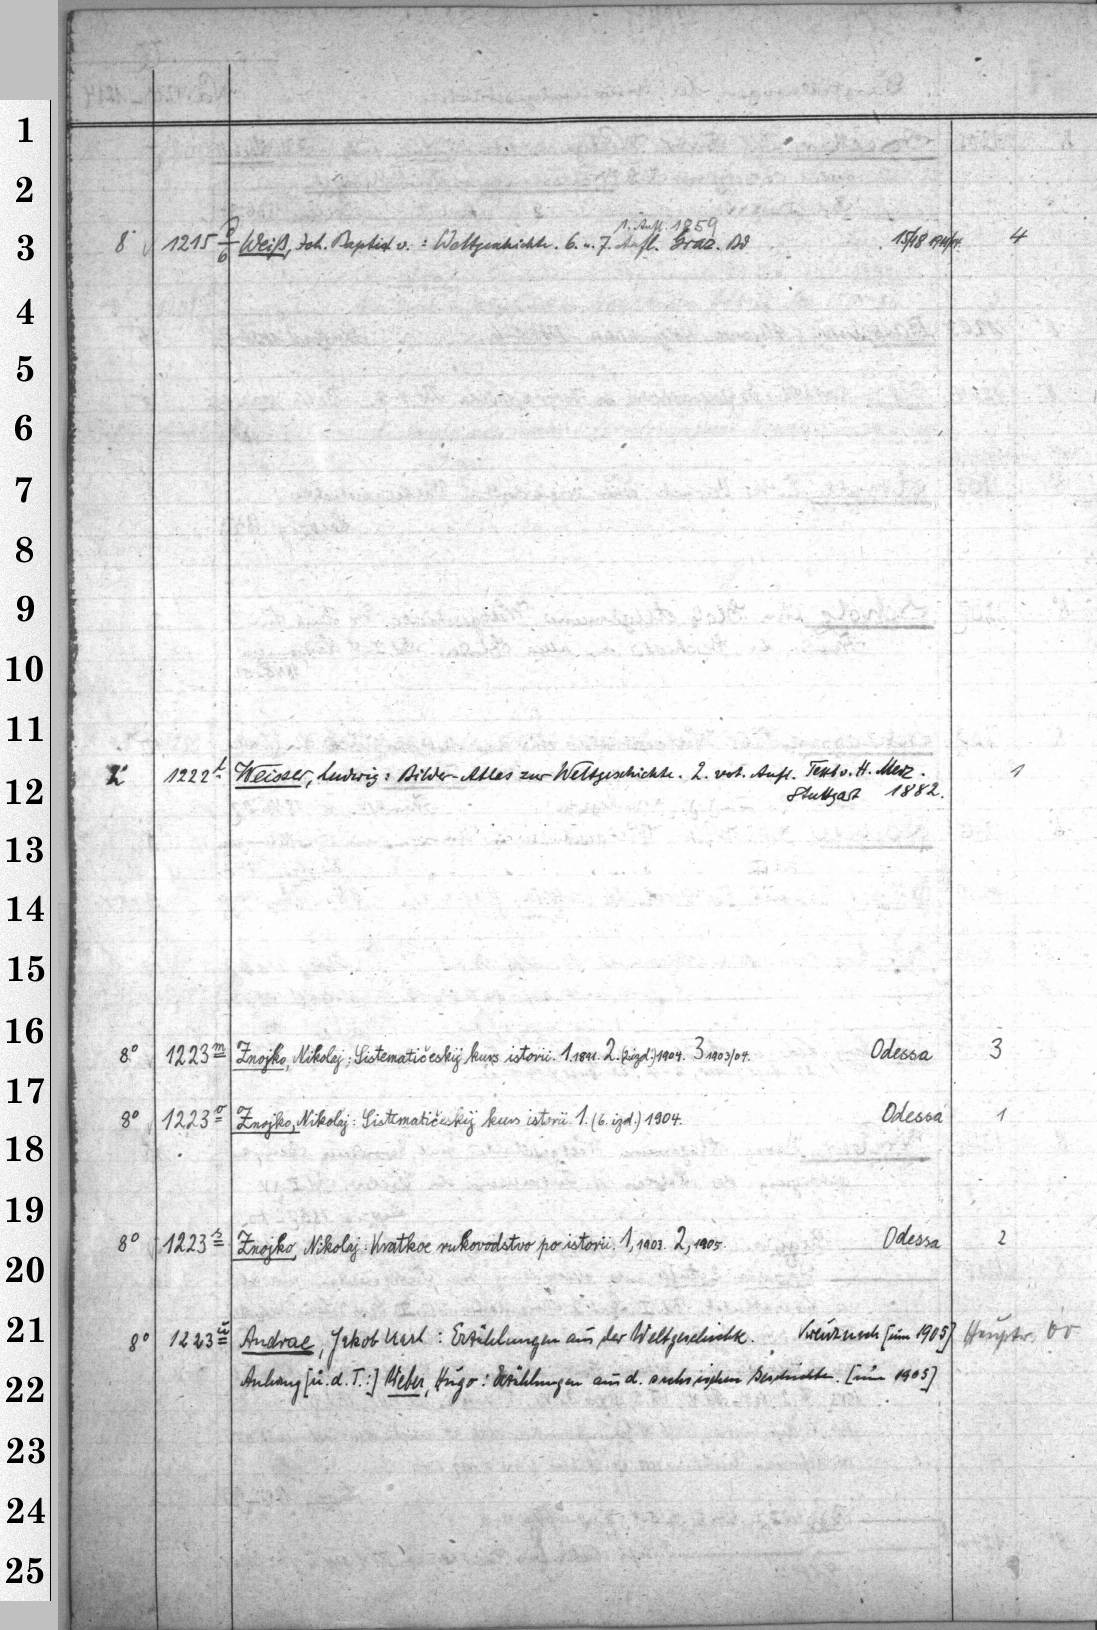 1
2
1. Aufl. 1859
3 8° 1215 β/b Weiß, Joh. Baptist v.: Weltgeschichte. 6. u. 7. Aufl. Graz. Bd 15/18 4
4
5
6
7
8
9
10
11
2° 1222 Weisser, Ludwig: Bilder-Atlas zur Weltgeschichte. 2. vot. Aufl. Text v. H. Merz. 1
12 Stuttgart 1882.
13
14
15
16
8° 1223 m Znojko, Nikolaj: Sistematičeskij kurs istorii. 1. 1891. 2. (2 izd.) 1904. 3 1903/04. Odessa 3
17
8° 1223 o Znojko, Nikolaj: Sistematičeskij kurs istorii 1. (6. izd.) 1904. Odessa 1
18
19
8° 1223 s Znojko, Nikolaj: Kratkoe rukovodstvo po istorii. 1, 1903. 2, 1905. Odessa 2
20
21 8° 1223 Andrae, Jakob Karl: Erzählungen aus der Weltgeschichte. Kreuznach [um 1905] Hauptw.
22 Anhang [u. d. T.:] Weber, Hugo: Erzählungen aus d. sächsischen Geschichte. [um 1905]
23
24
25